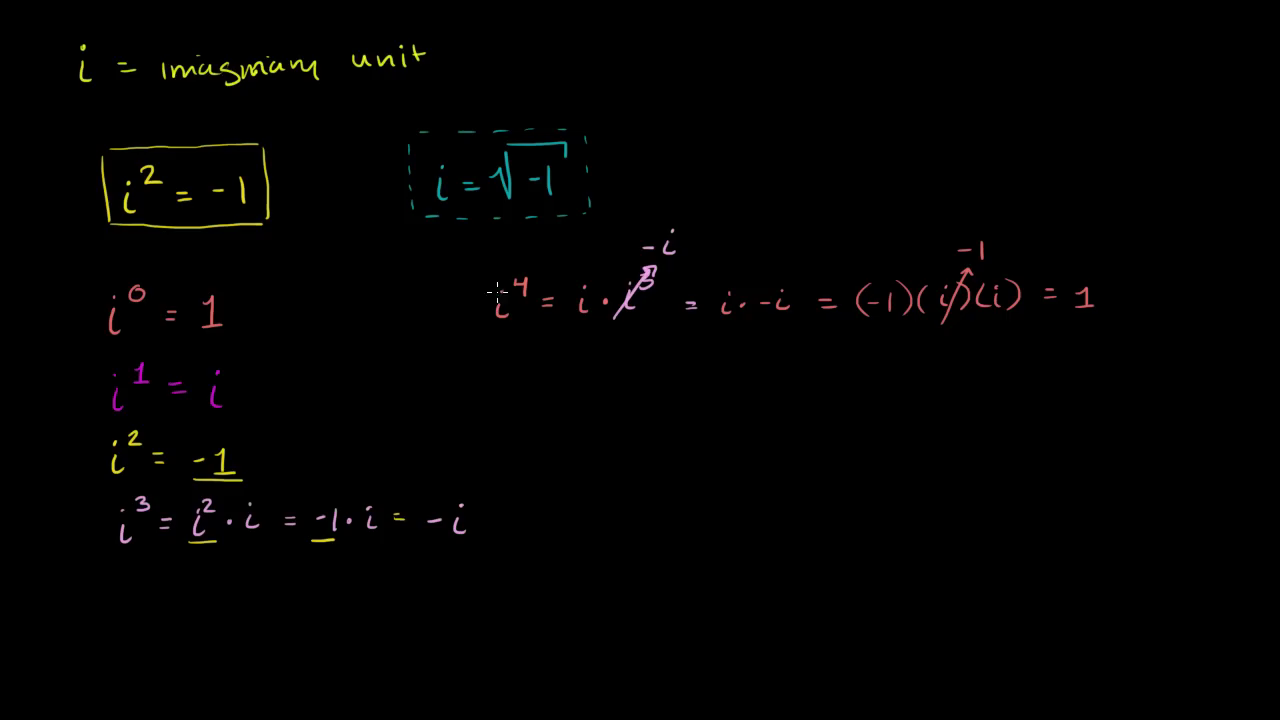 i = imaginary unit
i² = -1
i = √-1
i⁰ = 1
i¹ = i
i² = -1
i³ = i² · i = -1 · i = -i
-i -1
i⁴ = i · i³ = i · -i = (-1)(i)(i) = 1